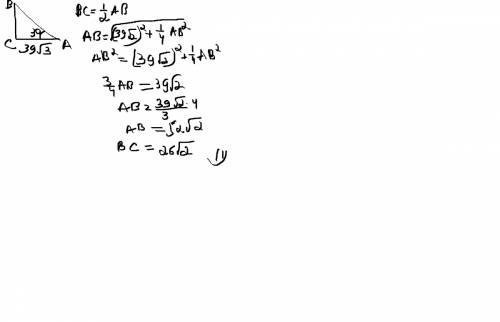 B
30
C A
39√3
BC = 1/2 AB
AB = √((39√2)² + 1/4 AB²)
AB² = (39√2)² + 1/4 AB²
3/4 AB = 39√2
AB = 39√2 · 4 / 3
AB = 52√2
BC = 26√2